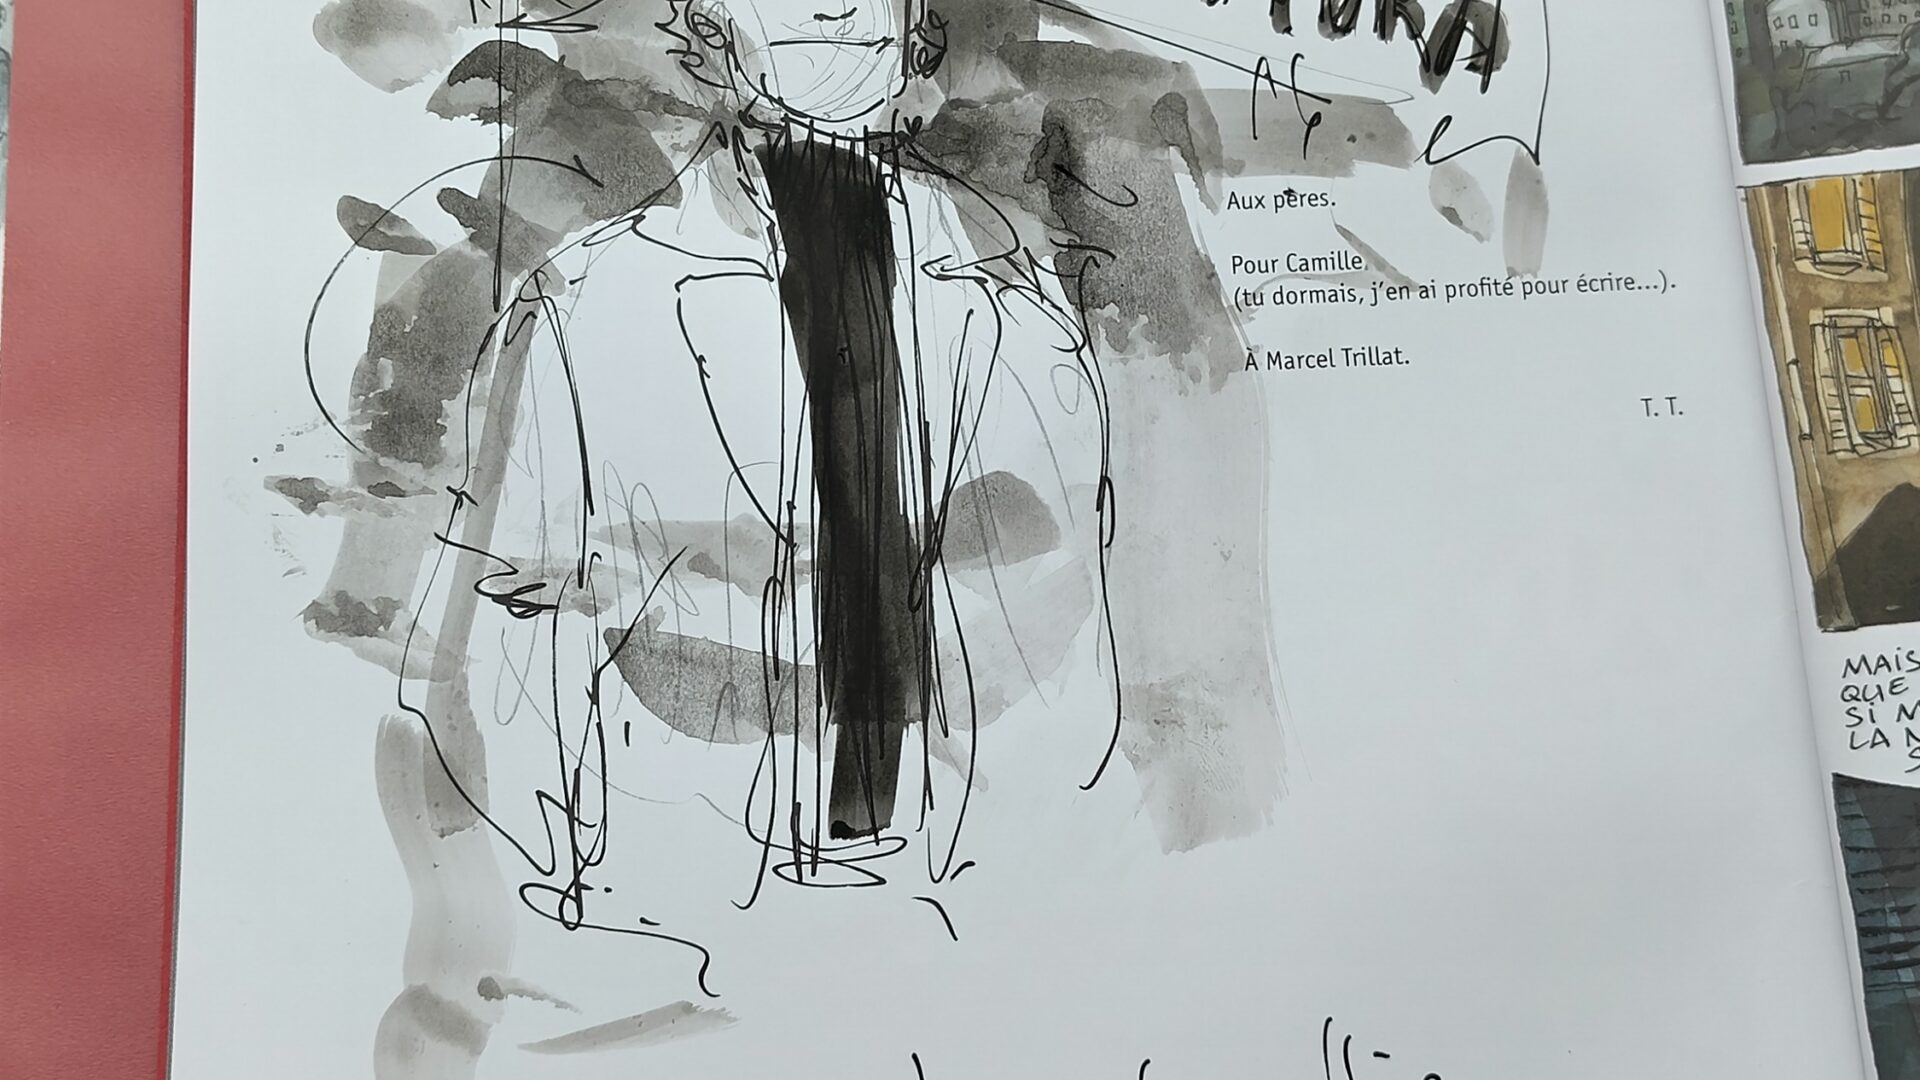 Aux pères.
Pour Camille.
(tu dormais, j'en ai profité pour écrire...).
À Marcel Trillat.
T. T.
MAIS
QUE
SI
LA